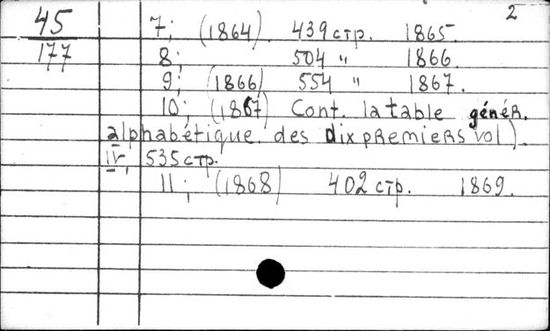 45
177
2
7; (1864). 439 стр. 1865.
8; 504 " 1866.
9; (1866) 554 " 1867.
10; (1867) Cont. la table génér.
alphabétique des dix premiers vol).
IV, 535 стр.
11; (1868) 402 стр. 1869.